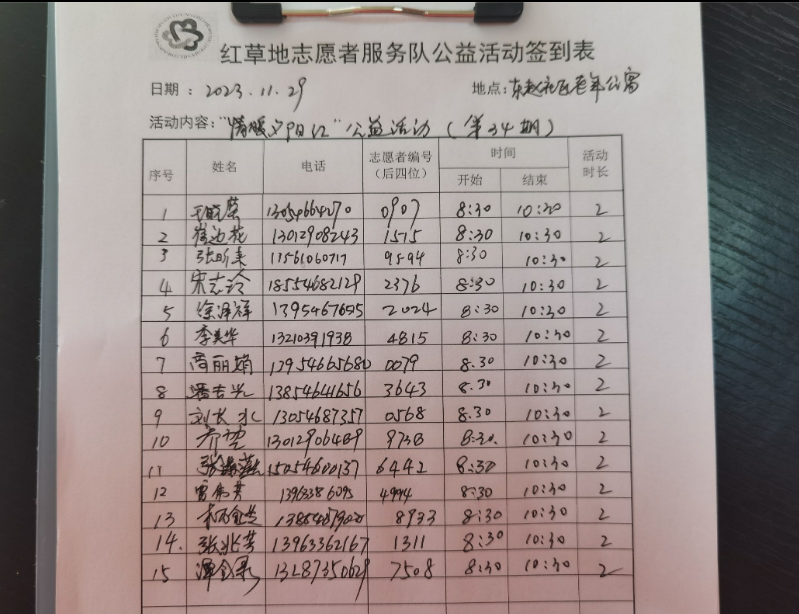 红草地志愿者服务队公益活动签到表
日期：2023.11.29 地点：东赵社区老年公寓
活动内容："情暖夕阳红"公益活动（第34期）
序号 姓名 电话 志愿者编号（后四位） 时间 活动时长
开始 结束
1 13054664270 0907 8:30 10:30 2
2 崔边花 13012908243 1515 8:30 10:30 2
3 张昕东 11561060717 9594 8:30 10:30 2
4 宋志玲 18554682129 2376 8:30 10:30 2
5 徐泽祥 2024 8:30 10:30 2
6 李美华 13210391938 4815 8:30 10:30 2
7 商丽娟 0079 8.30 10:30 2
8 潘吉光 13854641656 3643 8.30 10:30 2
9 刘长水 13054687357 0568 8.30 10:30 2
10 乔望 13012906489 9738 8:30. 10:30 2
11 15054600137 6442 8:30 10:30 2
12 雷伟芳 13963386095 4994 8:30 10:30 2
13 8933 8:30 10:30 2
14. 张兆芳 13963362167 1311 8:30 10:30 2
15 13287350629 7508 8:30 10:30 2